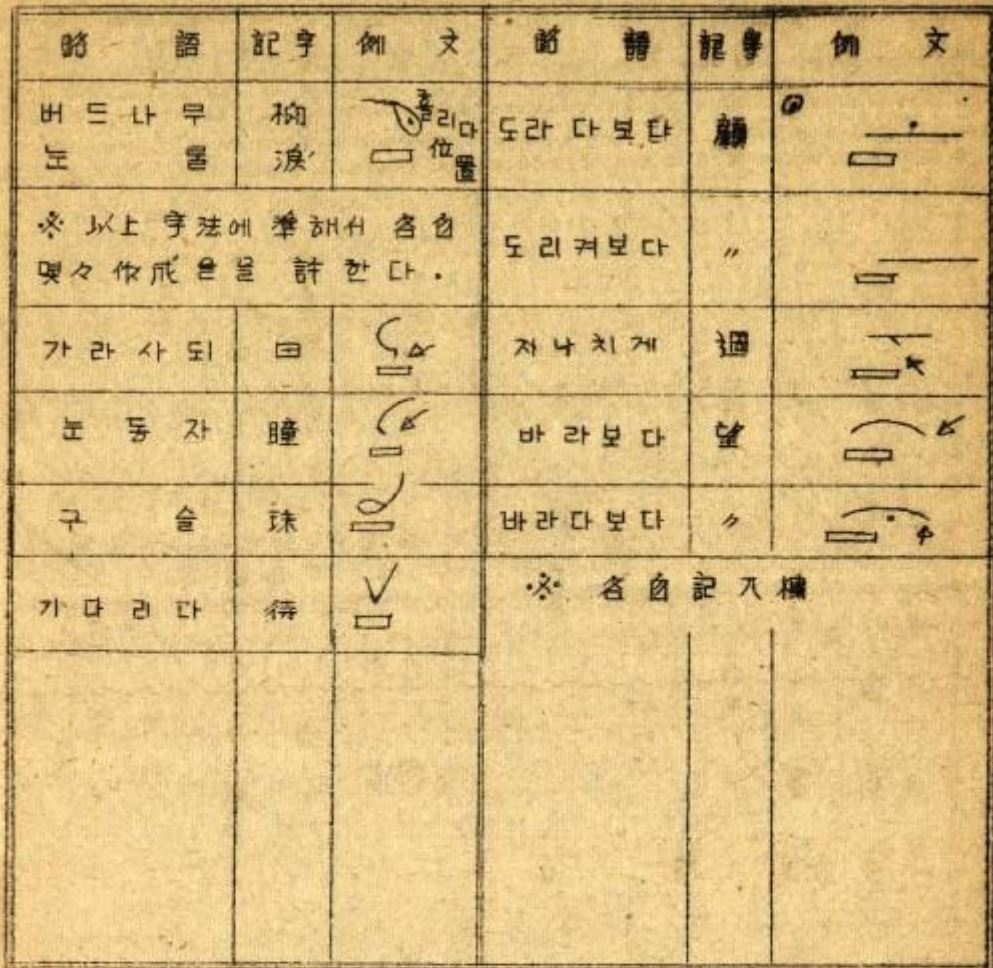 略語 記字 例文
버드나무 柳
눈물 淚
흘리다
位置
※ 以上 字法에 準해서 各自
作成 함을 許한다.
가라사되 曰
눈동자 瞳
구슬 珠
기다리다 待
略語 記字 例文
도라다보다 顧
도리켜보다 〃
지나치게 過
바라보다 望
바라다보다 〃
※ 各自記入欄